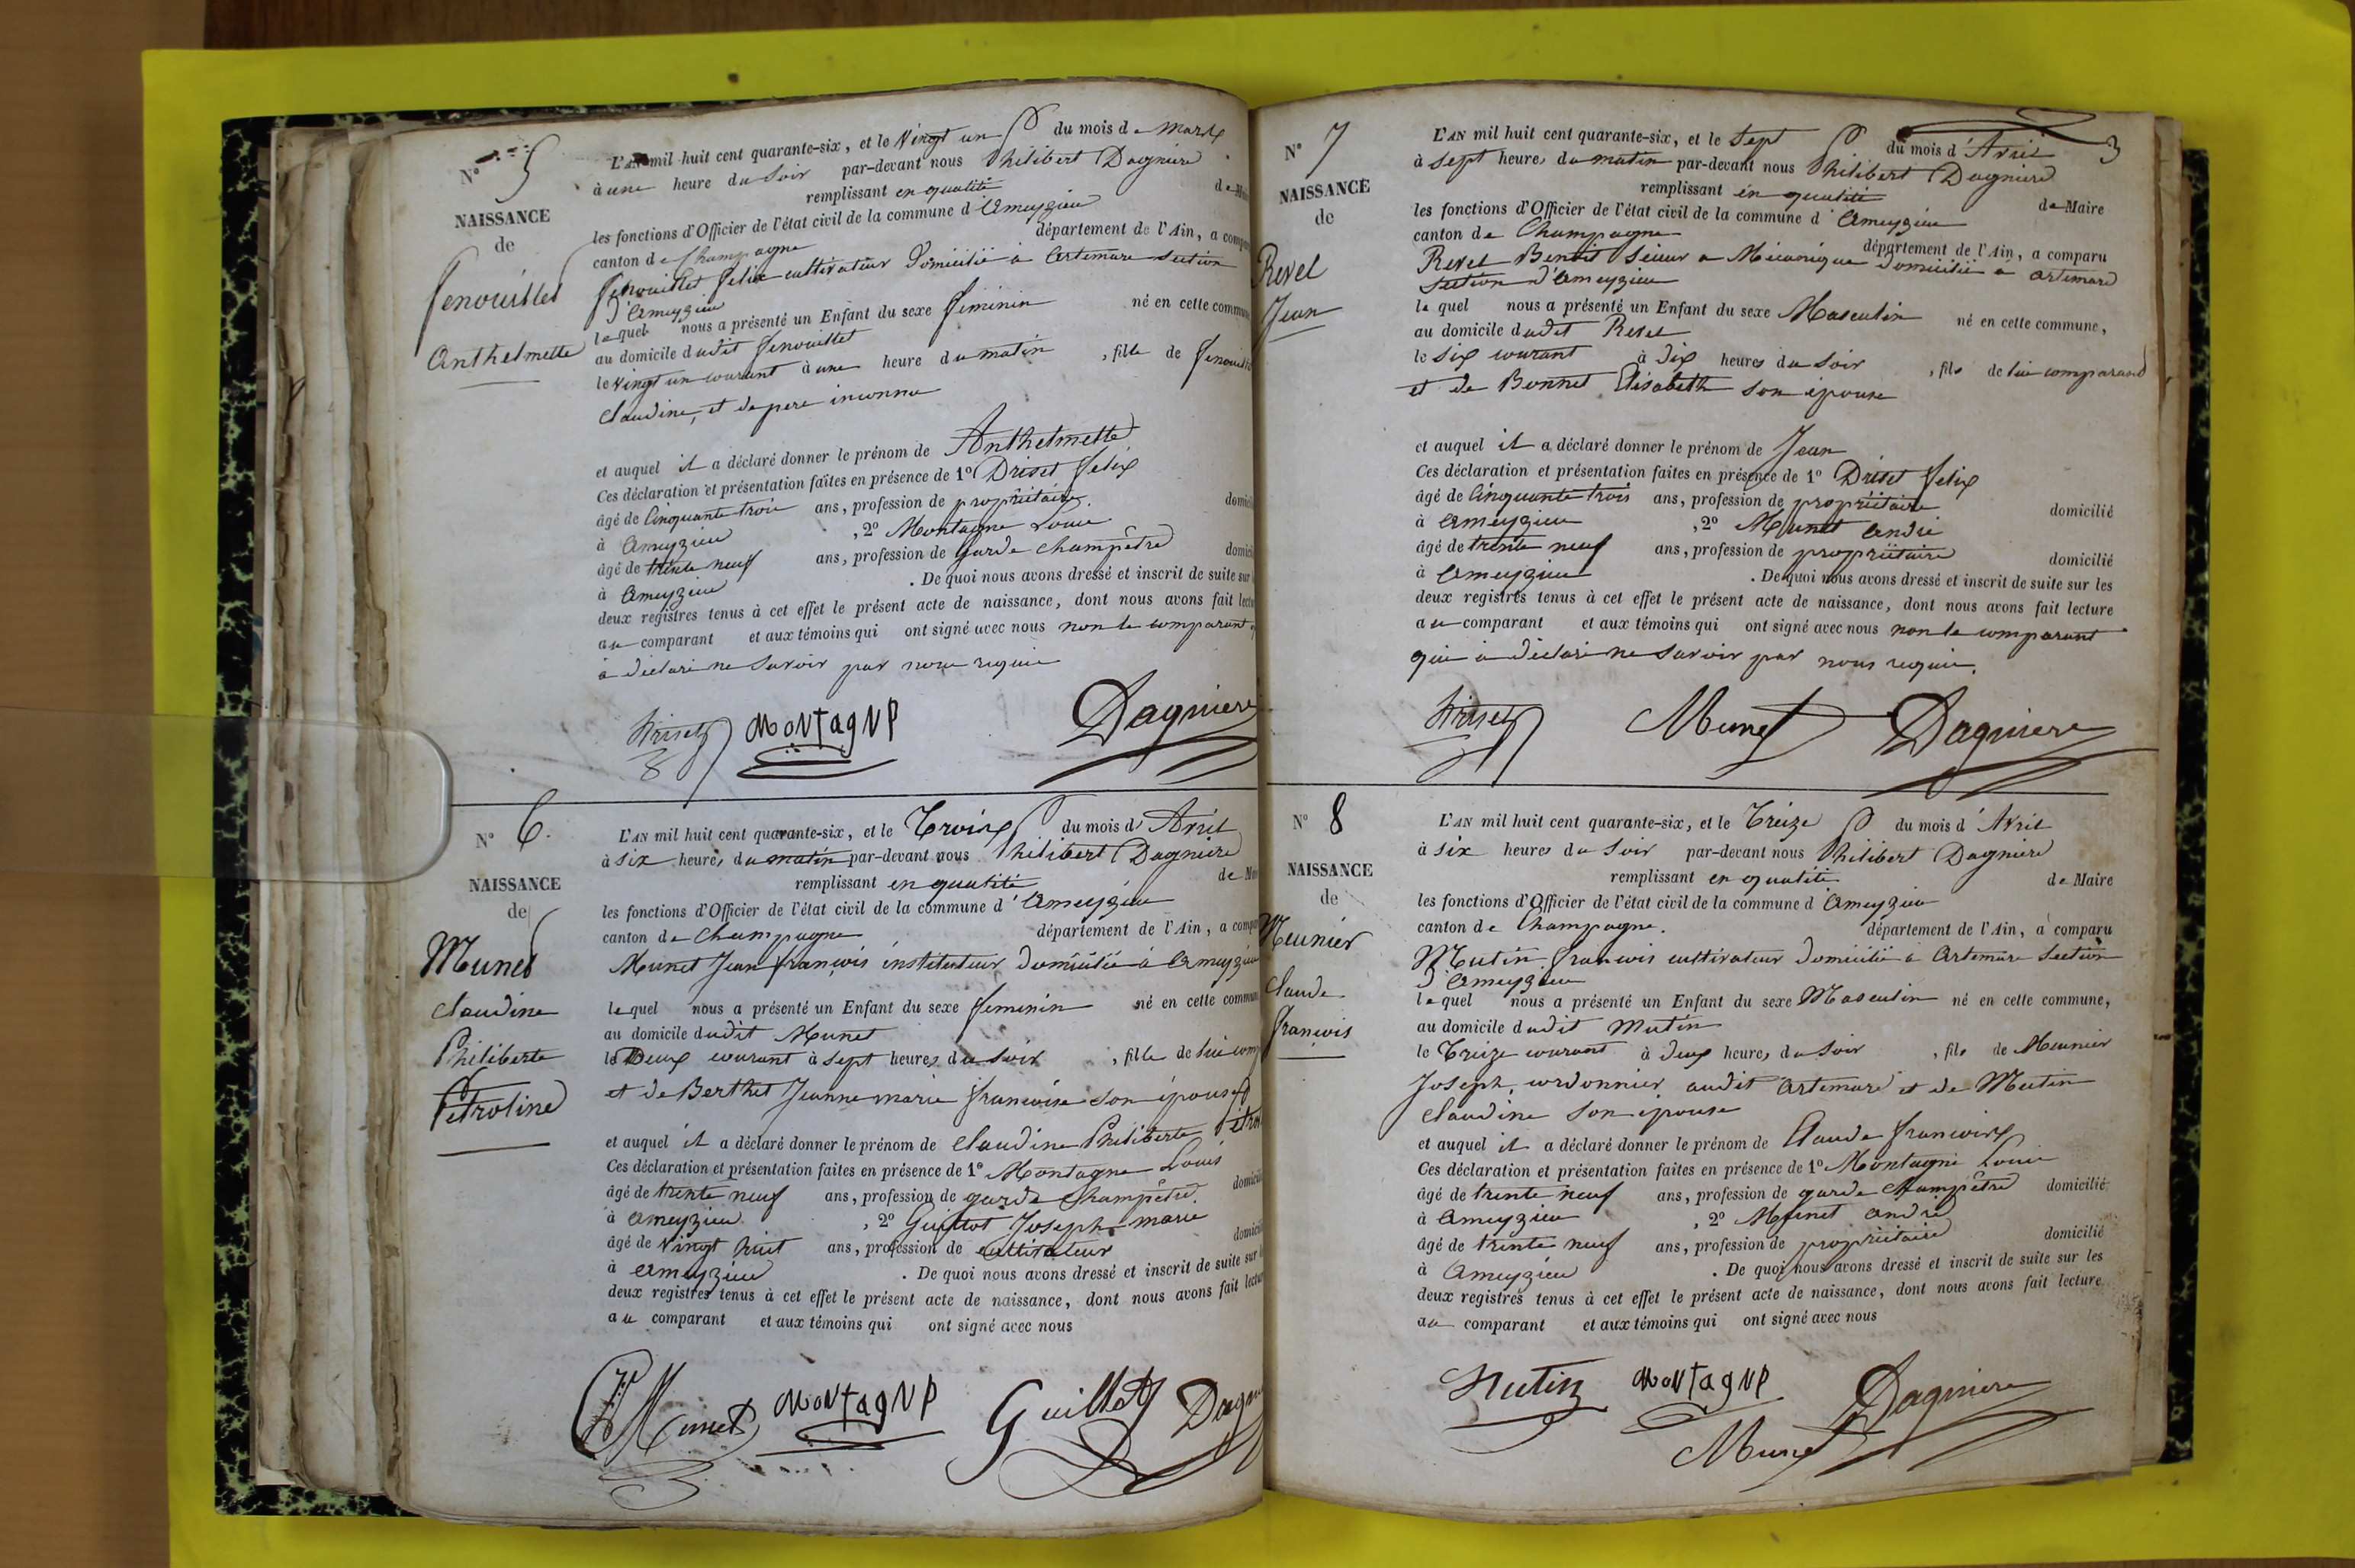 N° 5
NAISSANCE
de
Fenouillet
Anthelmette
L'AN mil huit cent quarante-six, et le Vingt un du mois de Mars
à une heure du Soir par-devant nous Philibert Dagniere
remplissant en qualité de
les fonctions d'Officier de l'état civil de la commune d'Ameyzieu
canton de Champagne département de l'Ain, a
Fenouillet Felix cultivateur domicilié à Artemare Section
d'Ameyzieu
lequel nous a présenté un Enfant du sexe féminin né en cette
au domicile dudit Fenouillet
le Vingt un courant à une heure du matin, fille de
Claudine, et de pere inconnu
et auquel il a déclaré donner le prénom de Anthelmette
Ces déclaration et présentation faites en présence de 1° Driset Felix
âgé de Cinquante trois ans, profession de propriétaire
à Ameyzieu, 2° Montagne Louis
âgé de trente neuf ans, profession de Garde champêtre
à Ameyzieu. De quoi nous avons dressé et inscrit de suite sur
deux registres tenus à cet effet le présent acte de naissance, dont nous avons fait
au comparant et aux témoins qui ont signé avec nous non le comparant
à déclaré ne Savoir par nous requis
Driset MONTAGNE Dagniere
N° 6.
NAISSANCE
de
Munet
Claudine
Philiberte
Pétroline
L'AN mil huit cent quarante-six, et le Trois du mois d'Avril
à six heures du matin par-devant nous Philibert Dagniere
remplissant en qualité de
les fonctions d'Officier de l'état civil de la commune d'Ameyzieu
canton de Champagne département de l'Ain, a
Munet Jean françois instituteur domicilié à Ameyzieu
lequel nous a présenté un Enfant du sexe feminin né en cette
au domicile dudit Munet
le Deux courant à Sept heures du Soir, fille de lui
et de Berthet Jeanne marie françoise son épouse
et auquel il a déclaré donner le prénom de Claudine Philiberte
Ces déclaration et présentation faites en présence de 1° Montagne Louis
âgé de trente neuf ans, profession de garde Champêtre.
à Ameyzieu, 2° Guillot Joseph marie
âgé de Vingt huit ans, profession de cultivateur
à Ameyzieu. De quoi nous avons dressé et inscrit de suite sur
deux registres tenus à cet effet le présent acte de naissance, dont nous avons fait
au comparant et aux témoins qui ont signé avec nous
Munet MONTAGNE Guillot
3
N° 7
NAISSANCE
de
Revel
Jean
L'AN mil huit cent quarante-six, et le Sept du mois d'Avril
à Sept heures du matin par-devant nous Philibert Dagniere
remplissant en qualité de Maire
les fonctions d'Officier de l'état civil de la commune d'Ameyzieu
canton de Champagne département de l'Ain, a comparu
Revel Benoit Scieur a Mécanique domicilié à Artemare
Section d'Ameyzieu
lequel nous a présenté un Enfant du sexe Masculin né en cette commune,
au domicile dudit Revel
le Six courant à Dix heures du Soir, fils de lui comparant
et de Bonnet Elisabeth son épouse
et auquel il a déclaré donner le prénom de Jean
Ces déclaration et présentation faites en présence de 1° Driset Felix
âgé de Cinquante trois ans, profession de propriétaire domicilié
à Ameyzieu, 2° Munet André
âgé de trente neuf ans, profession de propriétaire domicilié
à Ameyzieu. De quoi nous avons dressé et inscrit de suite sur les
deux registres tenus à cet effet le présent acte de naissance, dont nous avons fait lecture
au comparant et aux témoins qui ont signé avec nous non le comparant
qui a déclaré ne Savoir par nous requis.
Driset Munet Dagniere
N° 8
NAISSANCE
de
Meunier
Claude
françois
L'AN mil huit cent quarante-six, et le Treize du mois d'Avril
à six heures du Soir par-devant nous Philibert Dagniere
remplissant en qualité de Maire
les fonctions d'Officier de l'état civil de la commune d'Ameyzieu
canton de Champagne. département de l'Ain, a comparu
Mutin françois cultivateur domicilié à Artemare Section
d'Ameyzieu
lequel nous a présenté un Enfant du sexe Masculin né en cette commune,
au domicile dudit Mutin
le Treize courant à deux heures du Soir, fils de Meunier
Joseph, cordonnier audit Artemare et de Mutin
Claudine Son épouse
et auquel il a déclaré donner le prénom de Claude françois
Ces déclaration et présentation faites en présence de 1° Montagne Louis
âgé de trente neuf ans, profession de garde Champêtre domicilié
à Ameyzieu, 2° Munet André
âgé de trente neuf ans, profession de propriétaire domicilié
à Ameyzieu. De quoi nous avons dressé et inscrit de suite sur les
deux registres tenus à cet effet le présent acte de naissance, dont nous avons fait lecture
au comparant et aux témoins qui ont signé avec nous
Mutin MONTAGNE Dagniere
Munet